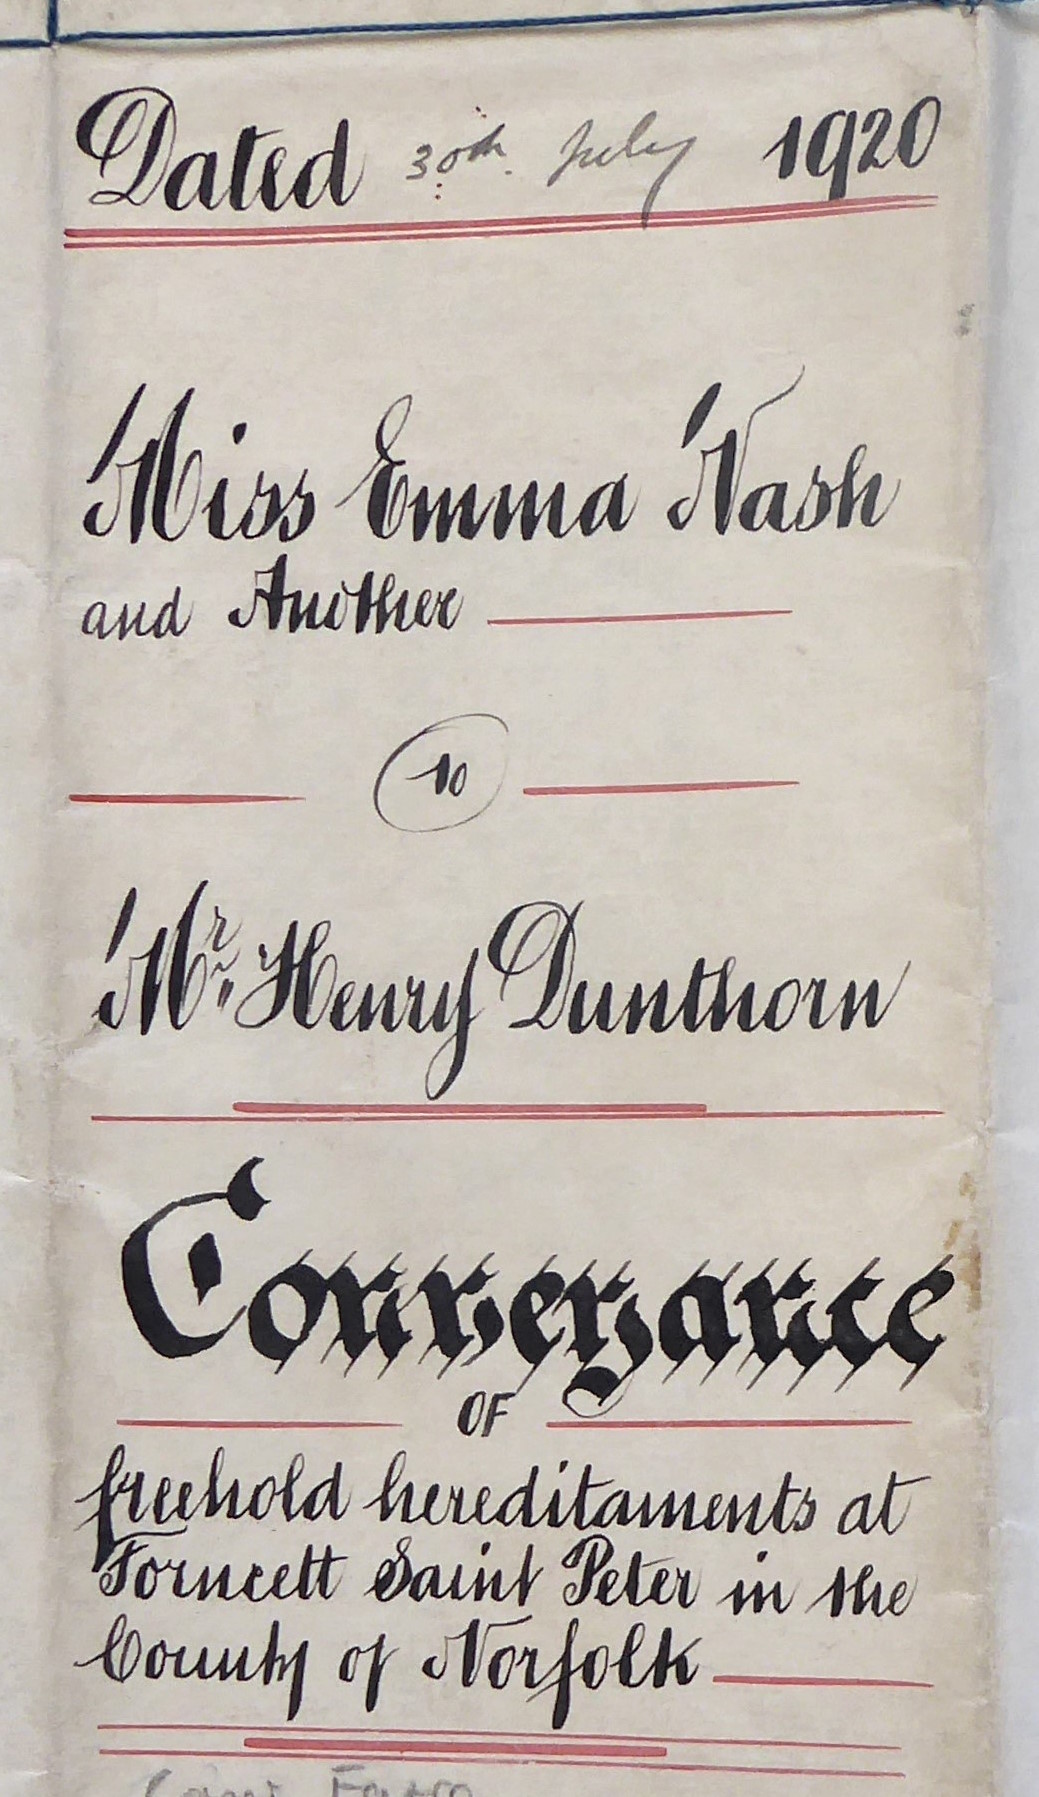 Dated 30th July 1920
Miss Emma Nash
and Another
to
Mr Henry Dunthorn
Conveyance
OF
freehold hereditaments at
Forncett Saint Peter in the
County of Norfolk